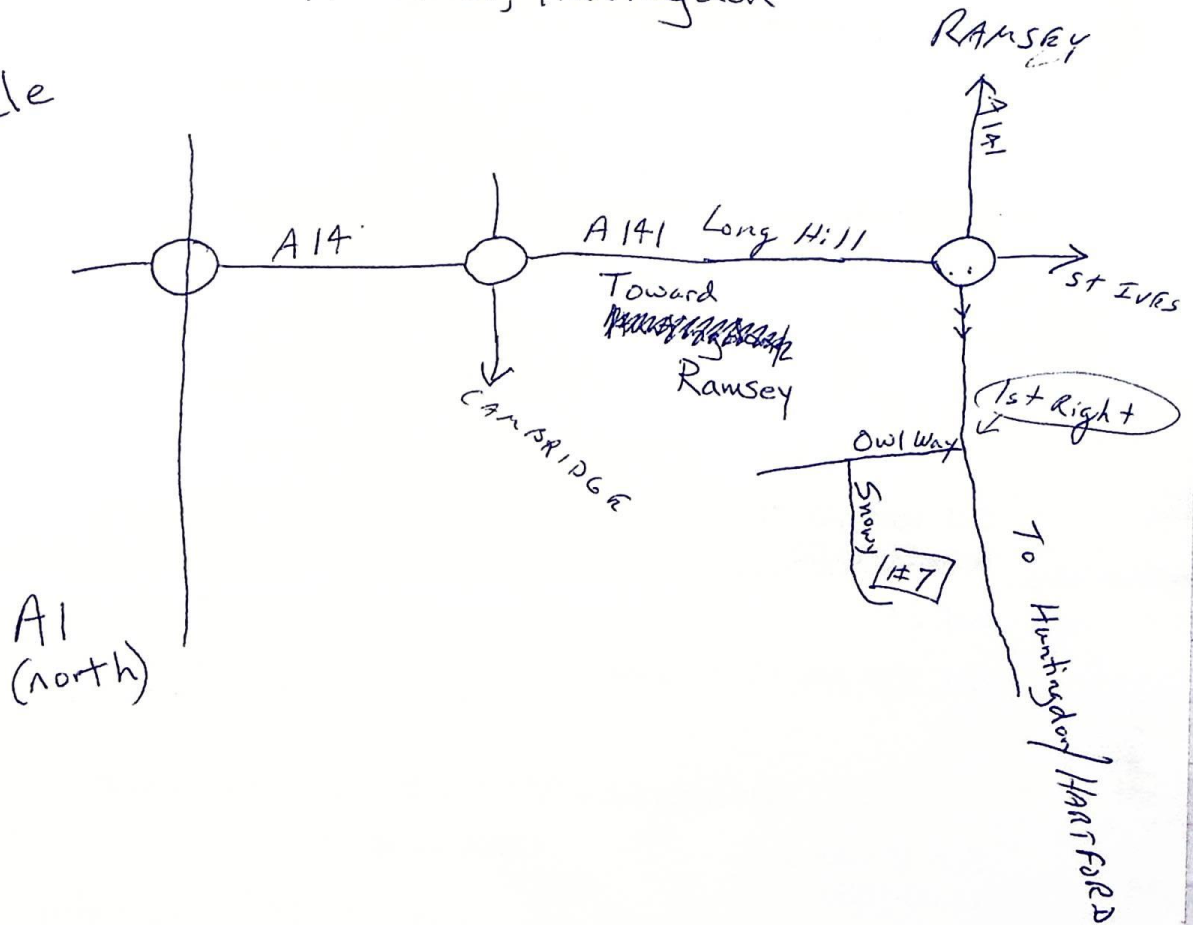 RAMSEY
A141
A14
A141 Long Hill
St IVES
Toward
Ramsey
CAMBRIDGE
1st Right
Owl Way
Snowy
#7
To Huntingdon/HARTFORD
A1
(north)